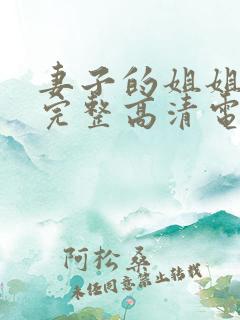 妻子的姐姐
完整高清电
阿松桑
未经同意禁止转载